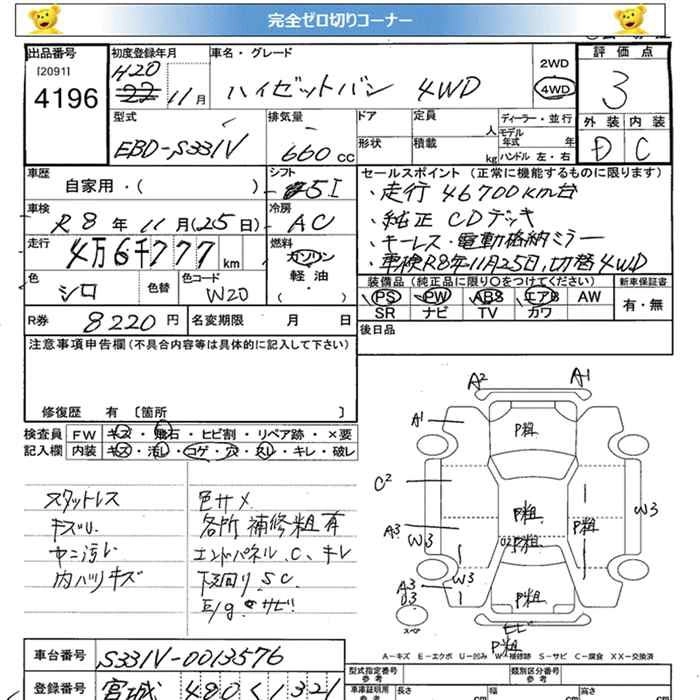 完全ゼロ切りコーナー
出品番号
[2091]
4196
初度登録年月
H20
22 11月
車名・グレード
ハイゼットバン 4WD
2WD
4WD
評価点
3
外装 内装
D C
型式
EBD-S331V
排気量
660 cc
ドア
形状
定員
人
積載
kg
ディーラー・並行
モデル
年式 年
ハンドル 左・右
車歴
自家用・( )
シフト
5I
車検
R8年11月(25日)
冷房
AC
走行
4万6千777 km
燃料
ガソリン
軽油
( ・ )
色
シロ
色替
色コード
W20
R券
8220円
名変期限 月 日
セールスポイント(正常に機能するものに限ります)
・走行46700km台
・純正CDデッキ
・キーレス・電動格納ミラー
・車検R8年11月25日,切替4WD
装備品(純正品に限り○をつけてください)
PS PW ABS エアB AW
SR ナビ TV カワ
新車保証書
有・無
後日品
注意事項申告欄(不具合内容等は具体的に記入して下さい)
修復歴 有 〔箇所 〕
検査員
記入欄
FW キズ・飛石・ヒビ割・リペア跡・×要
内装 キズ・汚レ・コゲ・穴・スレ・キレ・破レ
スタットレス
キズU
ヤニ汚レ
内ハツリキズ
色サメ
各所補修粗有
エンドパネル C、キレ
下回り SC
E/g サビ
A2 A1
A1
P粗
C2
A3
W3
P粗
02 P粗
P粗
W3
W3
A3
U3
P粗
スペア
P粗
A-キズ E-エクボ U-凹み W-補修跡 S-サビ C-腐食 XX-交換済
車台番号
S331V-0013576
登録番号
宮城 480 い 321
型式指定番号
参考
類別区分番号
参考
車庫証明用
参考
長さ cm
幅 cm
高さ cm